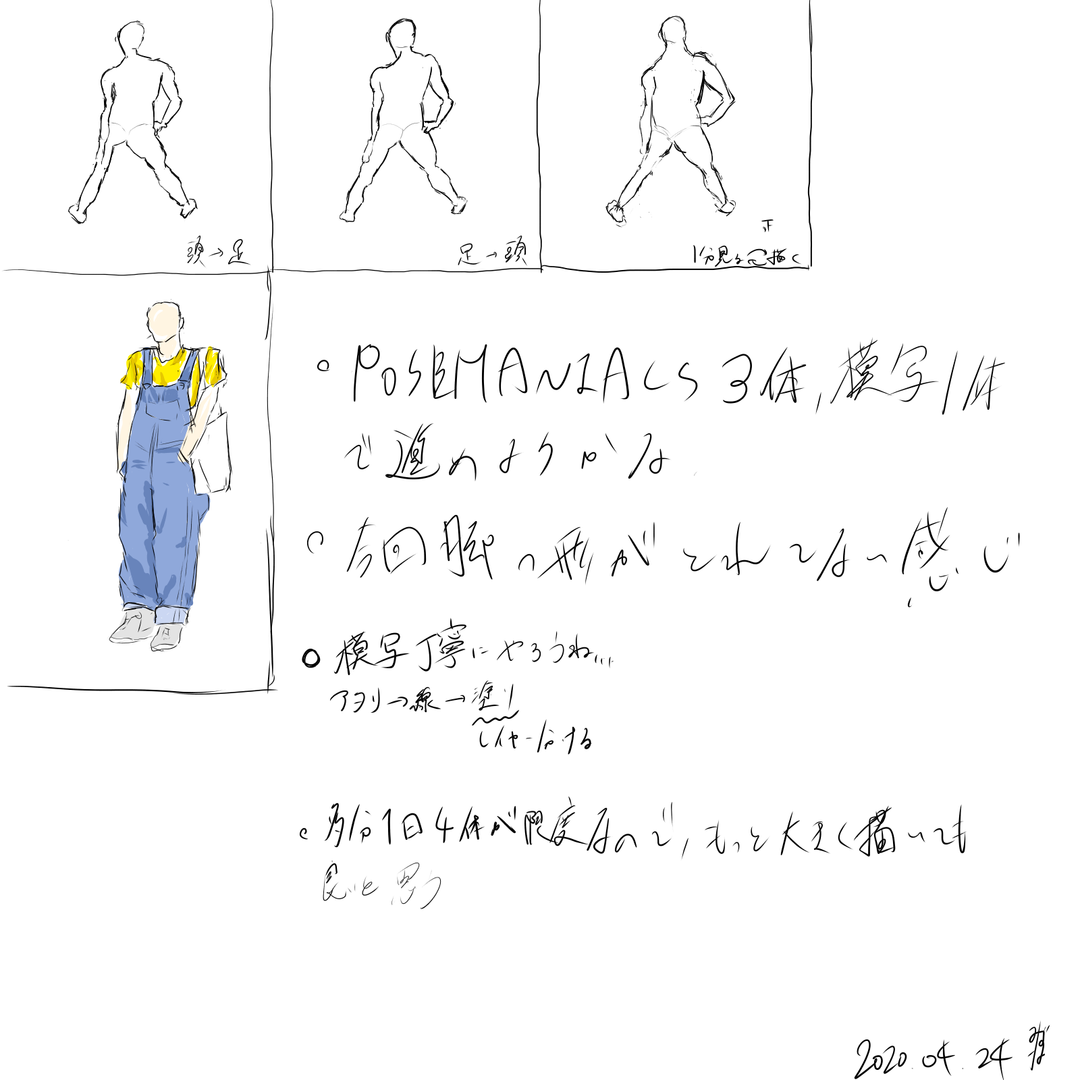 頭→足
足→頭
正
1分見て描く
○POSEMANIACS 3体,模写1体
で進めようかな
○今回脚の形がとれてない感じ
○模写丁寧にやろうね...
アタリ→線→塗り
レイヤー分ける
○多分1日4体が限度なので,もっと大きく描いても
良いと思う
2020.04.24